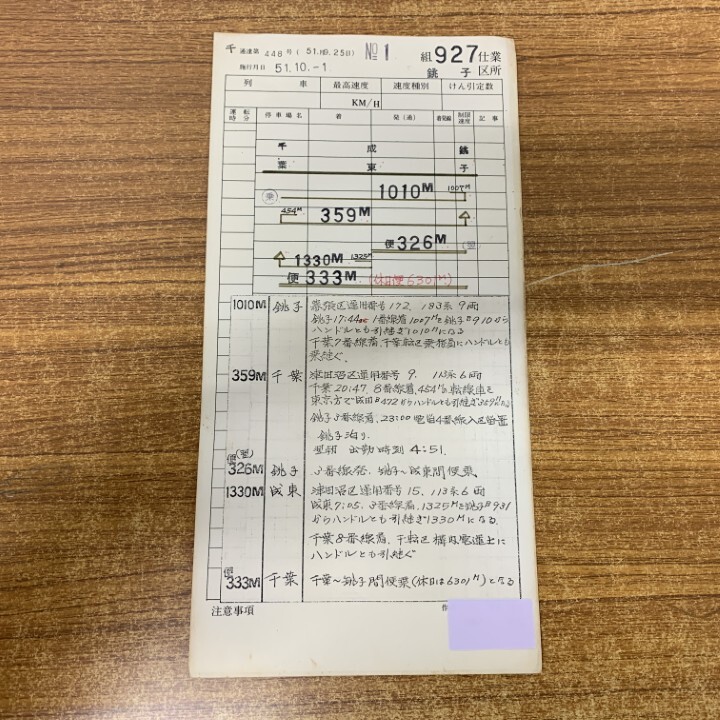 千 運達第 446 号 ( 51.9.25日) No 1 組 927 仕業
施行月日 51.10.-1 銚子 区所
列 車 最高速度 速度種別 けん引定数
KM/H
運転時分 停車場名 着 発(通) 着発線 制限速度 記事
千葉 成東 銚子
乗 1010M 1007M
454M 359M
便 326M (翌)
1330M 1325M
便 333M (休日便6301M)
1010M 銚子 幕張区運用番号172, 183系9両
銚子17:44 1番線着1007Mを銚子#910から
ハンドルとも引継ぎ1010Mになる
千葉7番線着, 千葉転区乗務員にハンドルとも
乗継ぐ.
359M 千葉 津田沼区運用番号9. 113系6両
千葉20:47, 8番線着, 454Mを転線車を
東京方で成田#472からハンドルとも引継ぎ359M
銚子3番線着, 23:00 電留4番線入区留置
銚子泊り.
翌朝 出勤時刻 4:51.
便(翌)
326M 銚子 3番線発. 銚子〜成東間便乗
1330M 成東 津田沼区運用番号15, 113系6両
成東7:05, 3番線着, 1325Mを銚子#931
からハンドルとも引継ぎ1330Mになる.
千葉8番線着, 千転区 横田電運士に
ハンドルとも引継ぐ
便
333M 千葉 千葉〜銚子間便乗(休日は6301M)となる
注意事項 作